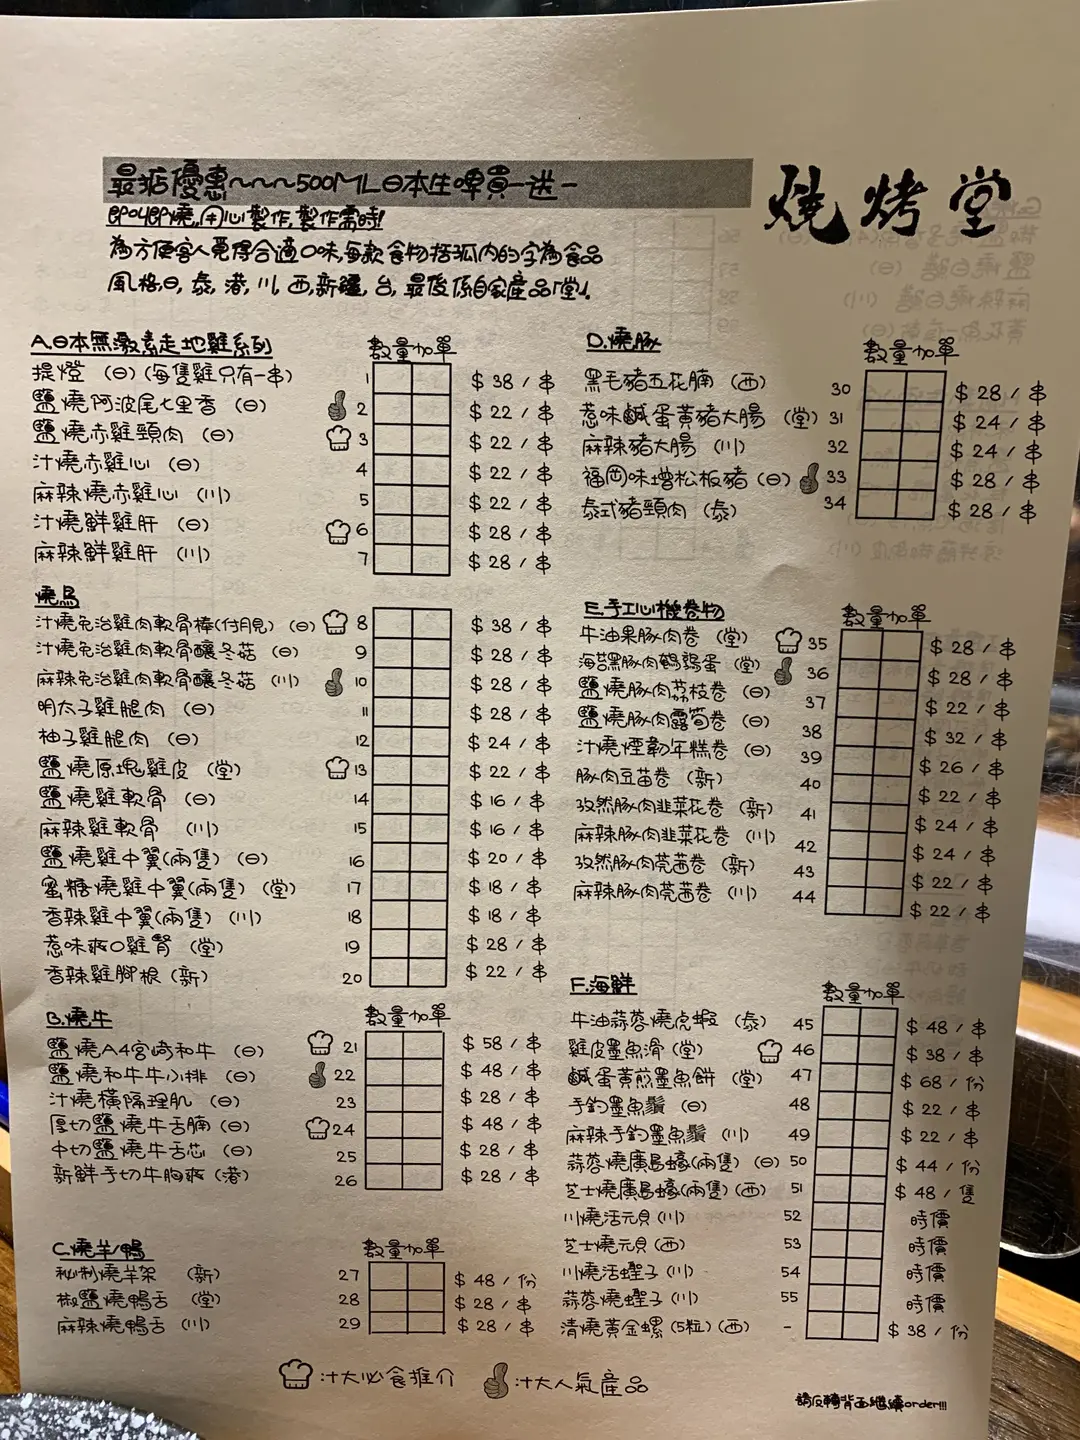 最掂優惠~~~500ML日本生啤買一送一
燒烤堂
即叫即燒,用心製作,製作需時!
為方便客人覓得合適口味,每款食物括弧內的字為食品
風格,日,泰,港,川,西,新疆,台,最後係自家產品「堂」.
A.日本無激素走地雞系列 數量加單
提燈 (日)(每隻雞只有一串) 1 $38/串
鹽燒阿波尾七里香 (日) 2 $22/串
鹽燒赤雞頸肉 (日) 3 $22/串
汁燒赤雞心 (日) 4 $22/串
麻辣燒赤雞心 (川) 5 $22/串
汁燒鮮雞肝 (日) 6 $28/串
麻辣鮮雞肝 (川) 7 $28/串
燒鳥
汁燒免治雞肉軟骨棒(付月見) (日) 8 $38/串
汁燒免治雞肉軟骨釀冬菇 (日) 9 $28/串
麻辣免治雞肉軟骨釀冬菇 (川) 10 $28/串
明太子雞腿肉 (日) 11 $28/串
柚子雞腿肉 (日) 12 $24/串
鹽燒原塊雞皮 (堂) 13 $22/串
鹽燒雞軟骨 (日) 14 $16/串
麻辣雞軟骨 (川) 15 $16/串
鹽燒雞中翼(兩隻) (日) 16 $20/串
蜜糖燒雞中翼(兩隻) (堂) 17 $18/串
香辣雞中翼(兩隻) (川) 18 $18/串
惹味爽口雞腎 (堂) 19 $28/串
香辣雞腳根 (新) 20 $22/串
B.燒牛 數量加單
鹽燒A4宮崎和牛 (日) 21 $58/串
鹽燒和牛牛小排 (日) 22 $48/串
汁燒橫隔理肌 (日) 23 $28/串
厚切鹽燒牛舌腩 (日) 24 $48/串
中切鹽燒牛舌芯 (日) 25 $28/串
新鮮手切牛胸爽 (港) 26 $28/串
C.燒羊/鴨 數量加單
秘制燒羊架 (新) 27 $48/份
椒鹽燒鴨舌 (堂) 28 $28/串
麻辣燒鴨舌 (川) 29 $28/串
D.燒豚 數量加單
黑毛豬五花腩 (西) 30 $28/串
惹味鹹蛋黃豬大腸 (堂) 31 $24/串
麻辣豬大腸 (川) 32 $24/串
福岡味增松板豬 (日) 33 $28/串
泰式豬頸肉 (泰) 34 $28/串
E.手工心機卷物 數量加單
牛油果豚肉卷 (堂) 35 $28/串
海苔黑豚肉鵪鶉蛋 (堂) 36 $28/串
鹽燒豚肉荔枝卷 (日) 37 $22/串
鹽燒豚肉露筍卷 (日) 38 $32/串
汁燒煙韌年糕卷 (日) 39 $26/串
豚肉豆苗卷 (新) 40 $22/串
孜然豚肉韭菜花卷 (新) 41 $24/串
麻辣豚肉韭菜花卷 (川) 42 $24/串
孜然豚肉芫茜卷 (新) 43 $22/串
麻辣豚肉芫茜卷 (川) 44 $22/串
F.海鮮 數量加單
牛油蒜蓉燒虎蝦 (泰) 45 $48/串
雞皮墨魚滑 (堂) 46 $38/串
鹹蛋黃煎墨魚餅 (堂) 47 $68/份
手釣墨魚鬚 (日) 48 $22/串
麻辣手釣墨魚鬚 (川) 49 $22/串
蒜蓉燒廣島蠔(兩隻) (日) 50 $44/份
芝士燒廣島蠔(兩隻)(西) 51 $48/隻
川燒活元貝 (川) 52 時價
芝士燒元貝 (西) 53 時價
川燒活蟶子 (川) 54 時價
蒜蓉燒蟶子 (川) 55 時價
清燒黃金螺 (5粒) (西) - $38/份
汁大必食推介 汁大人氣產品
請反轉背面繼續order!!!